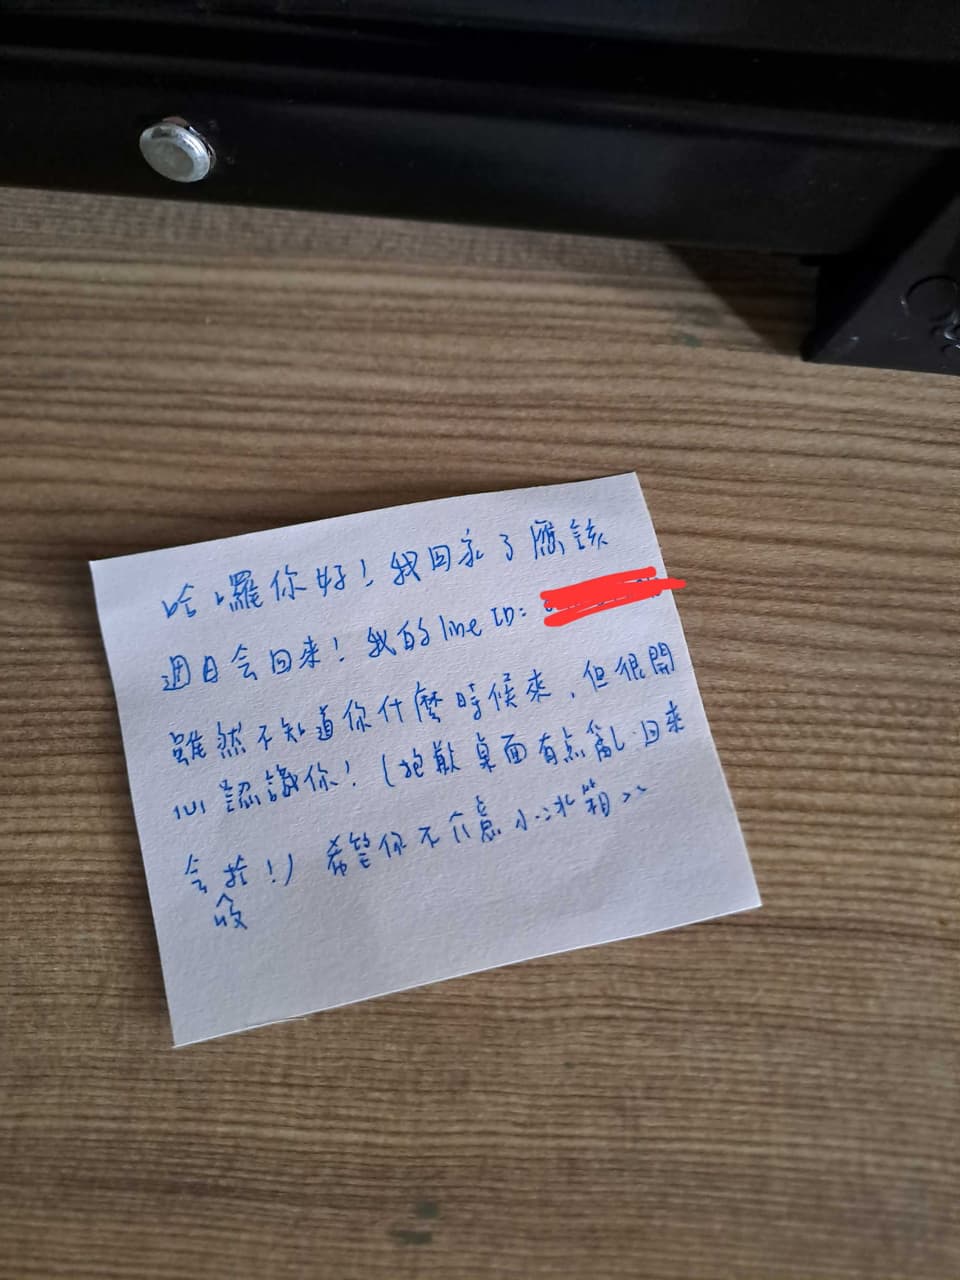 哈囉你好！我回家了應該
週日会回來！我的line ID：
雖然不知道你什麼時候來，但很開
心認識你！(抱歉桌面有点亂，回來
会收！) 希望你不介意小冰箱>>